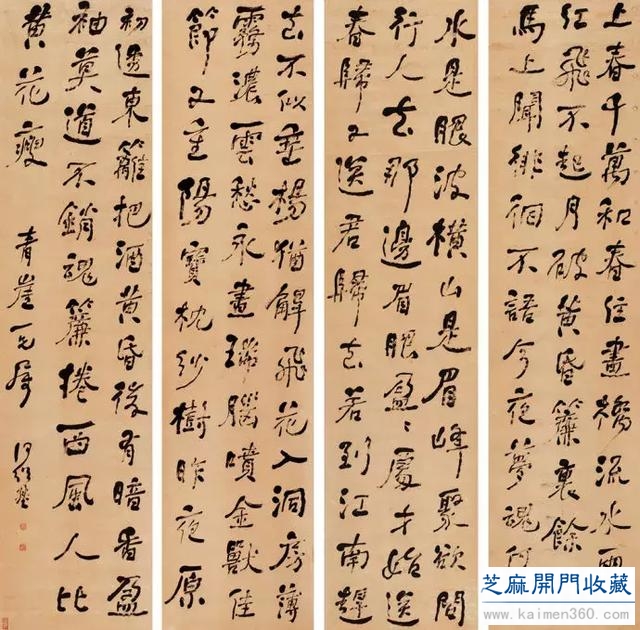 上春千萬和春住畫橋流水雨
紅飛不起月破黃昏簾裏餘
馬上聞徘徊不語今夜夢魂何
水是眼波橫山是眉峰聚欲問
行人去那邊眉眼盈盈處才始送
春歸又送君歸去若到江南趕
去不似垂楊猶解飛花入洞房薄
霧濃雲愁永晝瑞腦噴金獸佳
節又重陽寶枕紗樹昨夜原
初透東籬把酒黃昏後有暗香盈
袖莫道不銷魂簾捲西風人比
黃花瘦
青崖一兄屬
何紹基
芝麻開門收藏
www.kaimen360.com